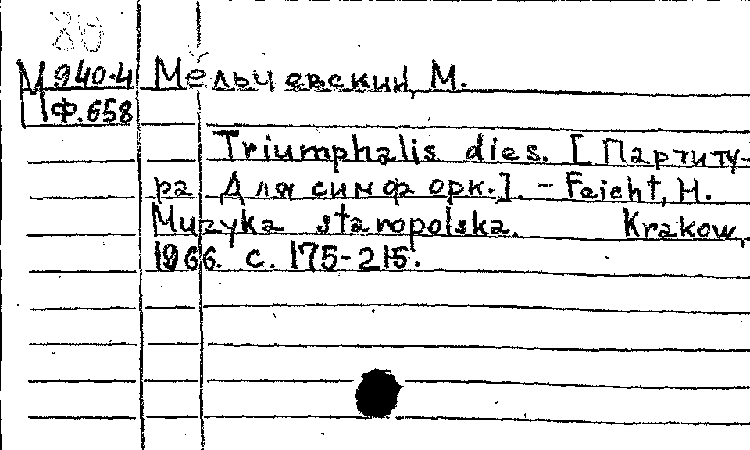 М 940-4 Мельчевский, М.
Ф.658
Triumphalis dies. [Партиту-
ра Для симф орк.]. - Feicht, H.
Muzyka staropolska. Krakow,
1966. с. 175-215.